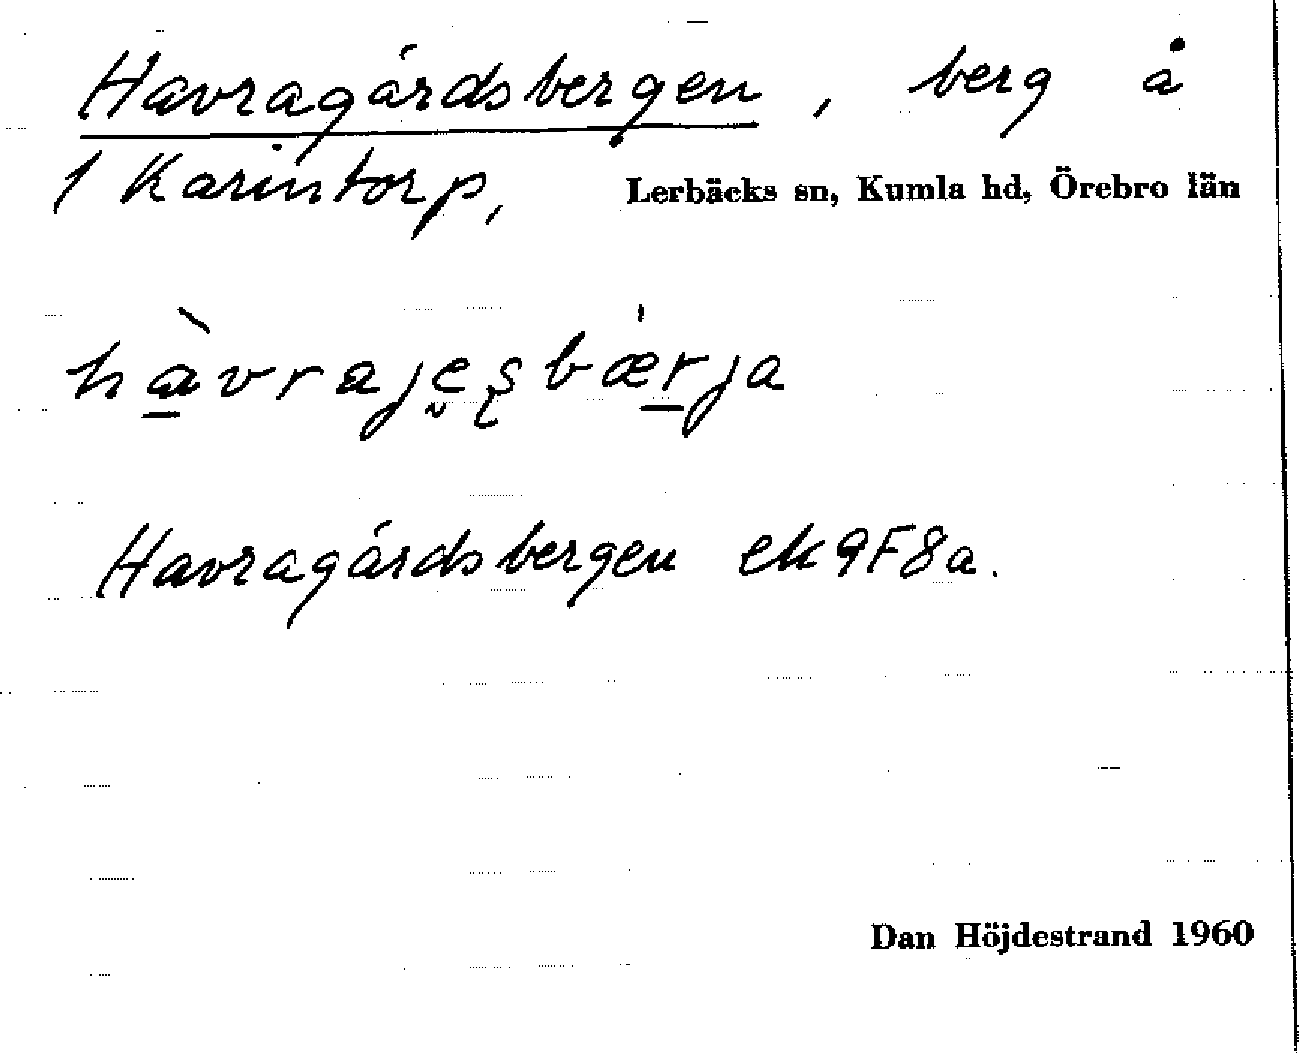 Havragårdsbergen, berg å
1 Karintorp, Lerbäcks sn, Kumla hd, Örebro län
hàvrajęʂbǽrja
Havragårdsbergen ek 9F8a.
Dan Höjdestrand 1960